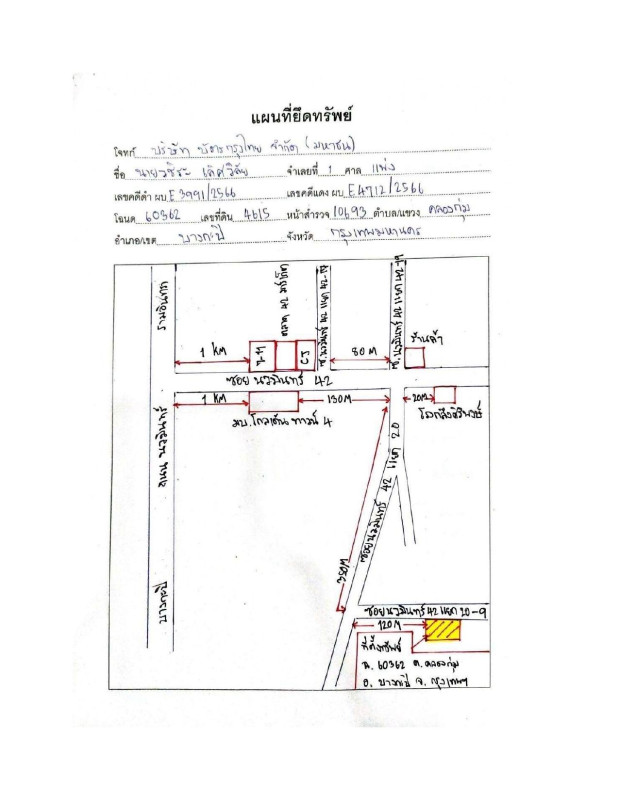 แผนที่ยึดทรัพย์
โจทก์ บริษัท บัตรกรุงไทย จำกัด (มหาชน)
ชื่อ นายวชิระ เลิศวิลัย จำเลยที่ 1 ศาล แพ่ง
เลขคดีดำ ผบ E3991/2566 เลขคดีแดง ผบ E4712/2566
โฉนด 60362 เลขที่ดิน 4615 หน้าสำรวจ 10693 ตำบล/แขวง คลองกุ่ม
อำเภอ/เขต บางกะปิ จังหวัด กรุงเทพมหานคร
รามอินทรา
ตลาด 42
ซ.นวมินทร์ 42 แยก
ซ.นวมินทร์ 42 แยก
1 KM
CJ
80 M
ร้านค้า
ซอย นวมินทร์ 42
1 KM
130M
20M
มบ.โกลเด้น ทาวน์ 4
ถนน นวมินทร์
ซอยนวมินทร์ 42 แยก 20
350M
บางกะปิ
ซอยนวมินทร์ 42 แยก 20-9
120M
ที่ตั้งทรัพย์
ฉ. 60362 ต. คลองกุ่ม
อ. บางกะปิ จ. กรุงเทพฯ